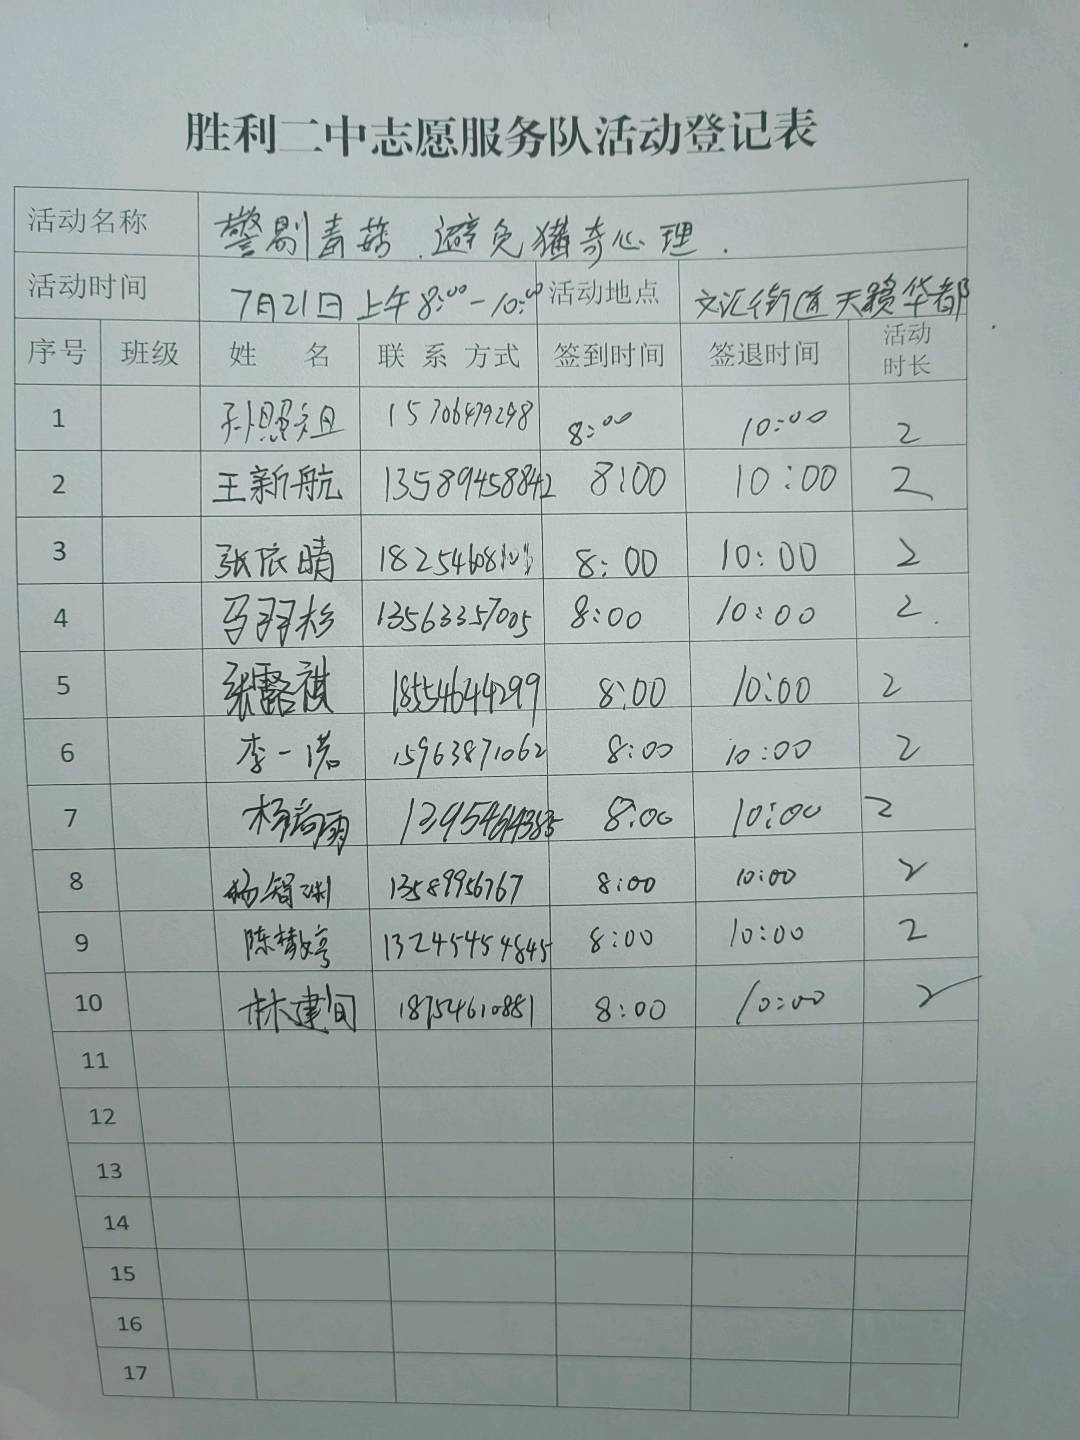 胜利二中志愿服务队活动登记表
活动名称 警剔毒菇.避免猎奇心理.
活动时间 7月21日上午8:00-10:00 活动地点 文汇街道天籁华都
序号 班级 姓 名 联 系 方式 签到时间 签退时间 活动时长
1 孙照祖 15706479298 8:00 10:00 2
2 王新航 13589458842 8:00 10:00 2
3 张依晴 18254608 8:00 10:00 2
4 马羽杉 13563357005 8:00 10:00 2
5 张露祺 18554644299 8:00 10:00 2
6 李一诺 15963871062 8:00 10:00 2
7 杨雨 8:00 10:00 2
8 杨智渊 13589956767 8:00 10:00 2
9 陈婷 13245454845 8:00 10:00 2
10 林建间 18754610881 8:00 10:00 2
11
12
13
14
15
16
17